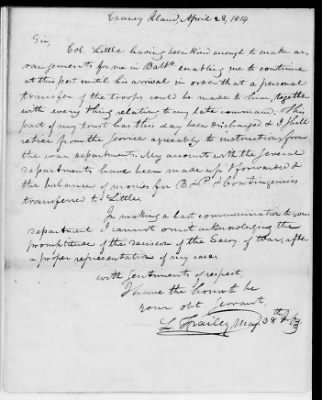 Craney Island, April 28, 1814.
Sir,
Col. Little having been kind enough to make ar-
rangements for me in Balto. enabling me to continue
at this post until his arrival in order that a personal
transfer of the troops could be made to him, together
with every thing relating to my late command. This
part of my trust has this day been discharged & I shall
retire from the service agreeably to instructions from
the war department. My accounts with the several
departments have been made up & forwarded &
the balance of monies for B & P & Contingencies
transferred to Little.
In making a last communication to your
department I cannot omit acknowledging the
promptitude of the decision of the Secy of War, after
a proper representation of my case.
with sentiments of respect,
I have the honor to be
your obt. Servant.
L Frailey Maj 38th Regt